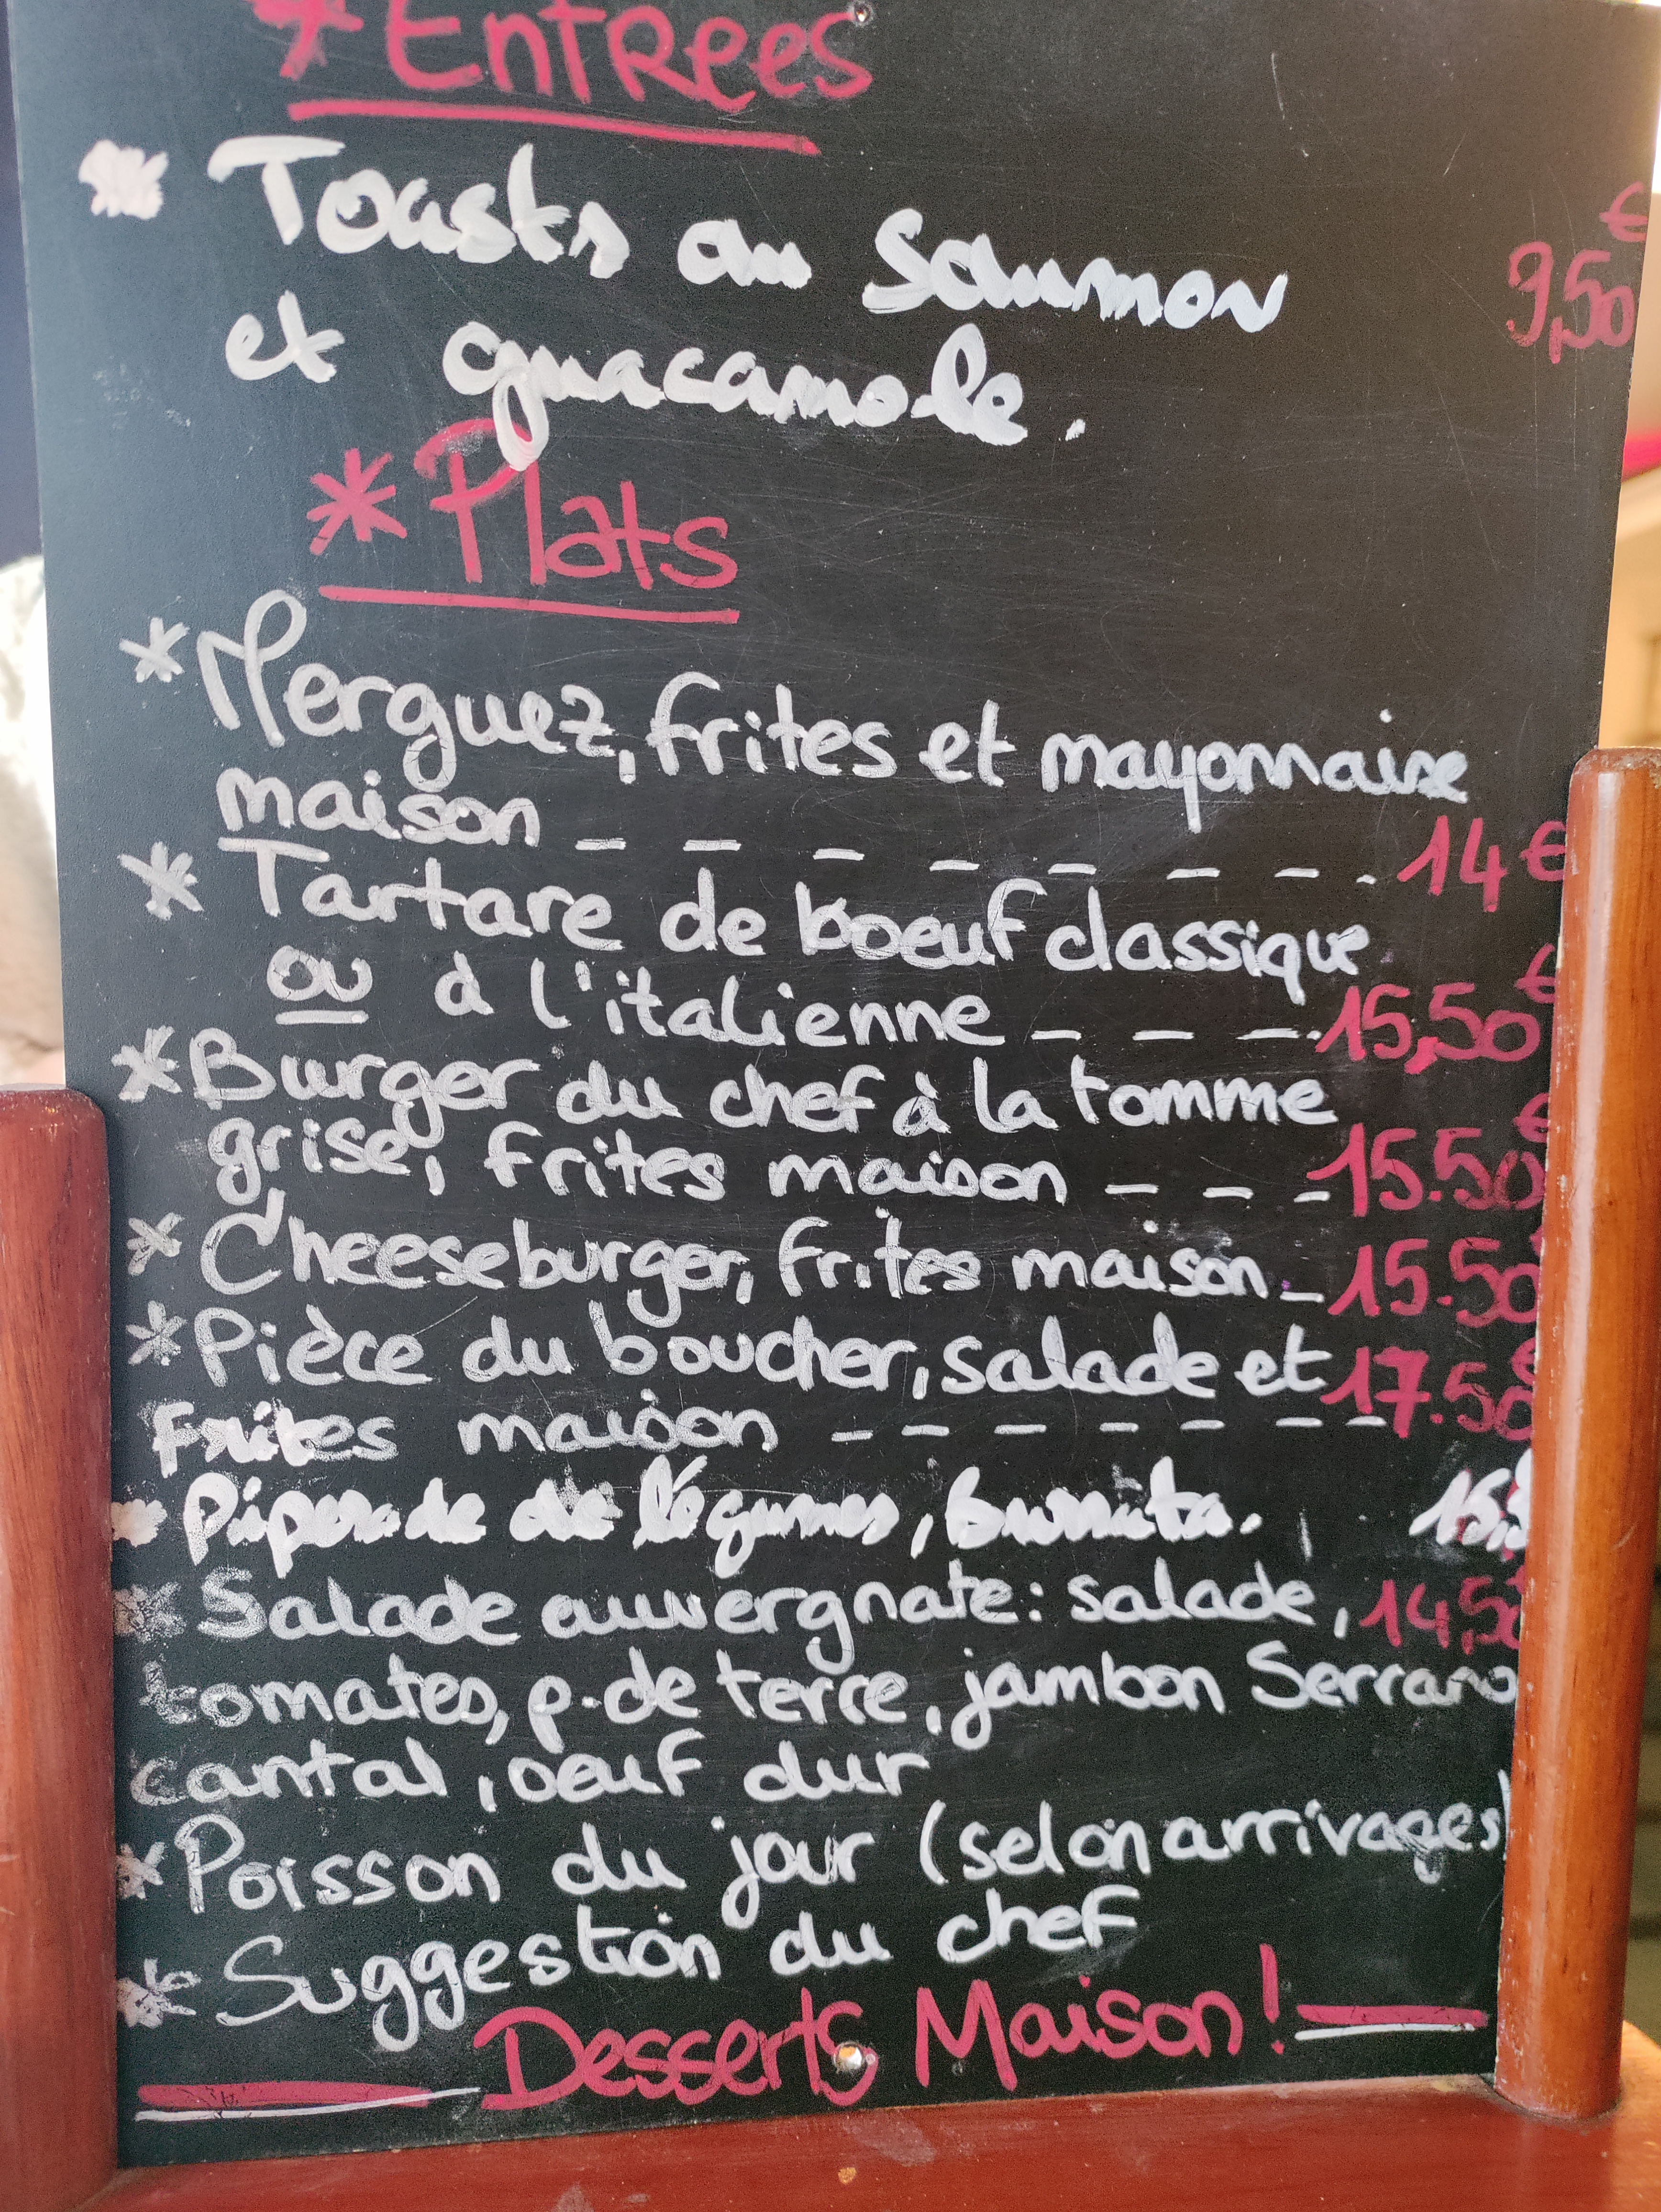 * Entrees
* Toasts au Saumon
€
9,50
et guacamole.
* Plats
* Merguez, frites et mayonnaise
maison _ _ _ _ _ _ _ _ 14 €
* Tartare de boeuf classique
ou à l'italienne _ _ _ 15,50 €
* Burger du chef à la tomme
grise, frites maison _ _ _ 15.50 €
* Cheeseburger, frites maison _ 15.50
* Pièce du boucher, salade et 17.50 €
Frites maison _ _ _ _ _ _ _
* Piperade de légumes, burrata. 15,5
* Salade auvergnate: salade, 14,50
tomates, p. de terre, jambon Serrano
cantal, oeuf dur
* Poisson du jour (selon arrivages)
* Suggestion du chef
Desserts Maison!